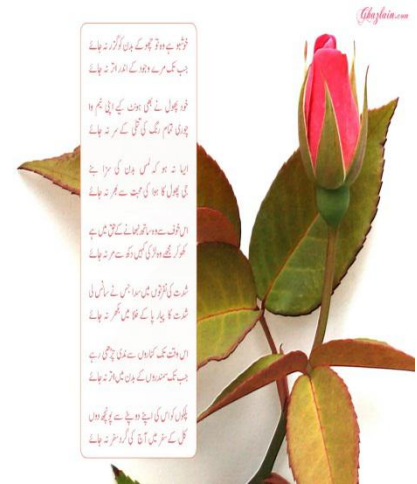 Ghazlain.com
خوشبو ہے وہ تو چھو کے بدن کو گزر نہ جائے
جب تک مرے وجود کے اندر اتر نہ جائے
خود پھول نے بھی ہونٹ کیے اپنی نیم وا
چوری تمام رنگ کی تتلی کے سر نہ جائے
ایسا نہ ہو کہ لمس بدن کی سزا بنے
جی پھول کا ہوا کی محبت سے بھر نہ جائے
اس خوف سے وہ ساتھ نبھانے کے حق میں ہے
کھو کر مجھے وہ لڑکی کہیں دکھ سے مر نہ جائے
شدت کی نفرتوں میں سدا جس نے سانس لی
شدت کا پیار پا کے خلا میں بکھر نہ جائے
اس وقت تک کناروں سے ندی چڑھتی رہے
جب تک سمندروں کے بدن میں اتر نہ جائے
پلکوں کو اس کی اپنے دوپٹے سے پونچھ دوں
کل کے سفر میں آج کی گرد سفر نہ جائے